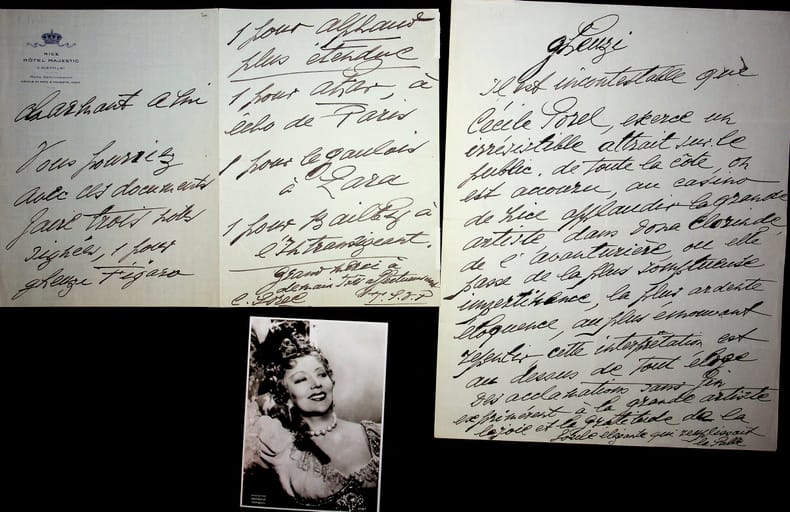 NICE
HÔTEL MAJESTIC
charmant ami
Vous pourriez
avec ces documents
faire trois notes
signées, 1 pour
gheuzi Figaro
1 pour
plus étendue
1 pour à
écho de Paris
1 pour le gaulois
à Zara
1 pour Bailby à
l'Intransigeant.
grand merci à
demain
C. Sorel T. S. V. P
gheuzi
Il est incontestable que
Cécile Sorel, exerce un
irrésistible attrait sur le
public. de toute la côte, on
est accouru, au casino
de Nice applaudir la grande
artiste dans dona Clorinde
de l'aventurière, ou elle
passe de la plus somptueuse
impertinence, la plus ardente
éloquence, au plus émouvant
repentir, cette interprétation est
au dessus de tout éloge
Des acclamations sans fin
exprimèrent à la grande artiste
la joie et la gratitude de la
foule élégante qui remplissait
la salle